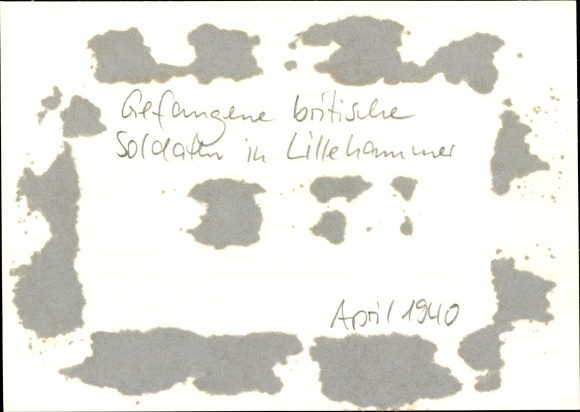 Gefangene britische
Soldaten in Lillehammer
April 1940